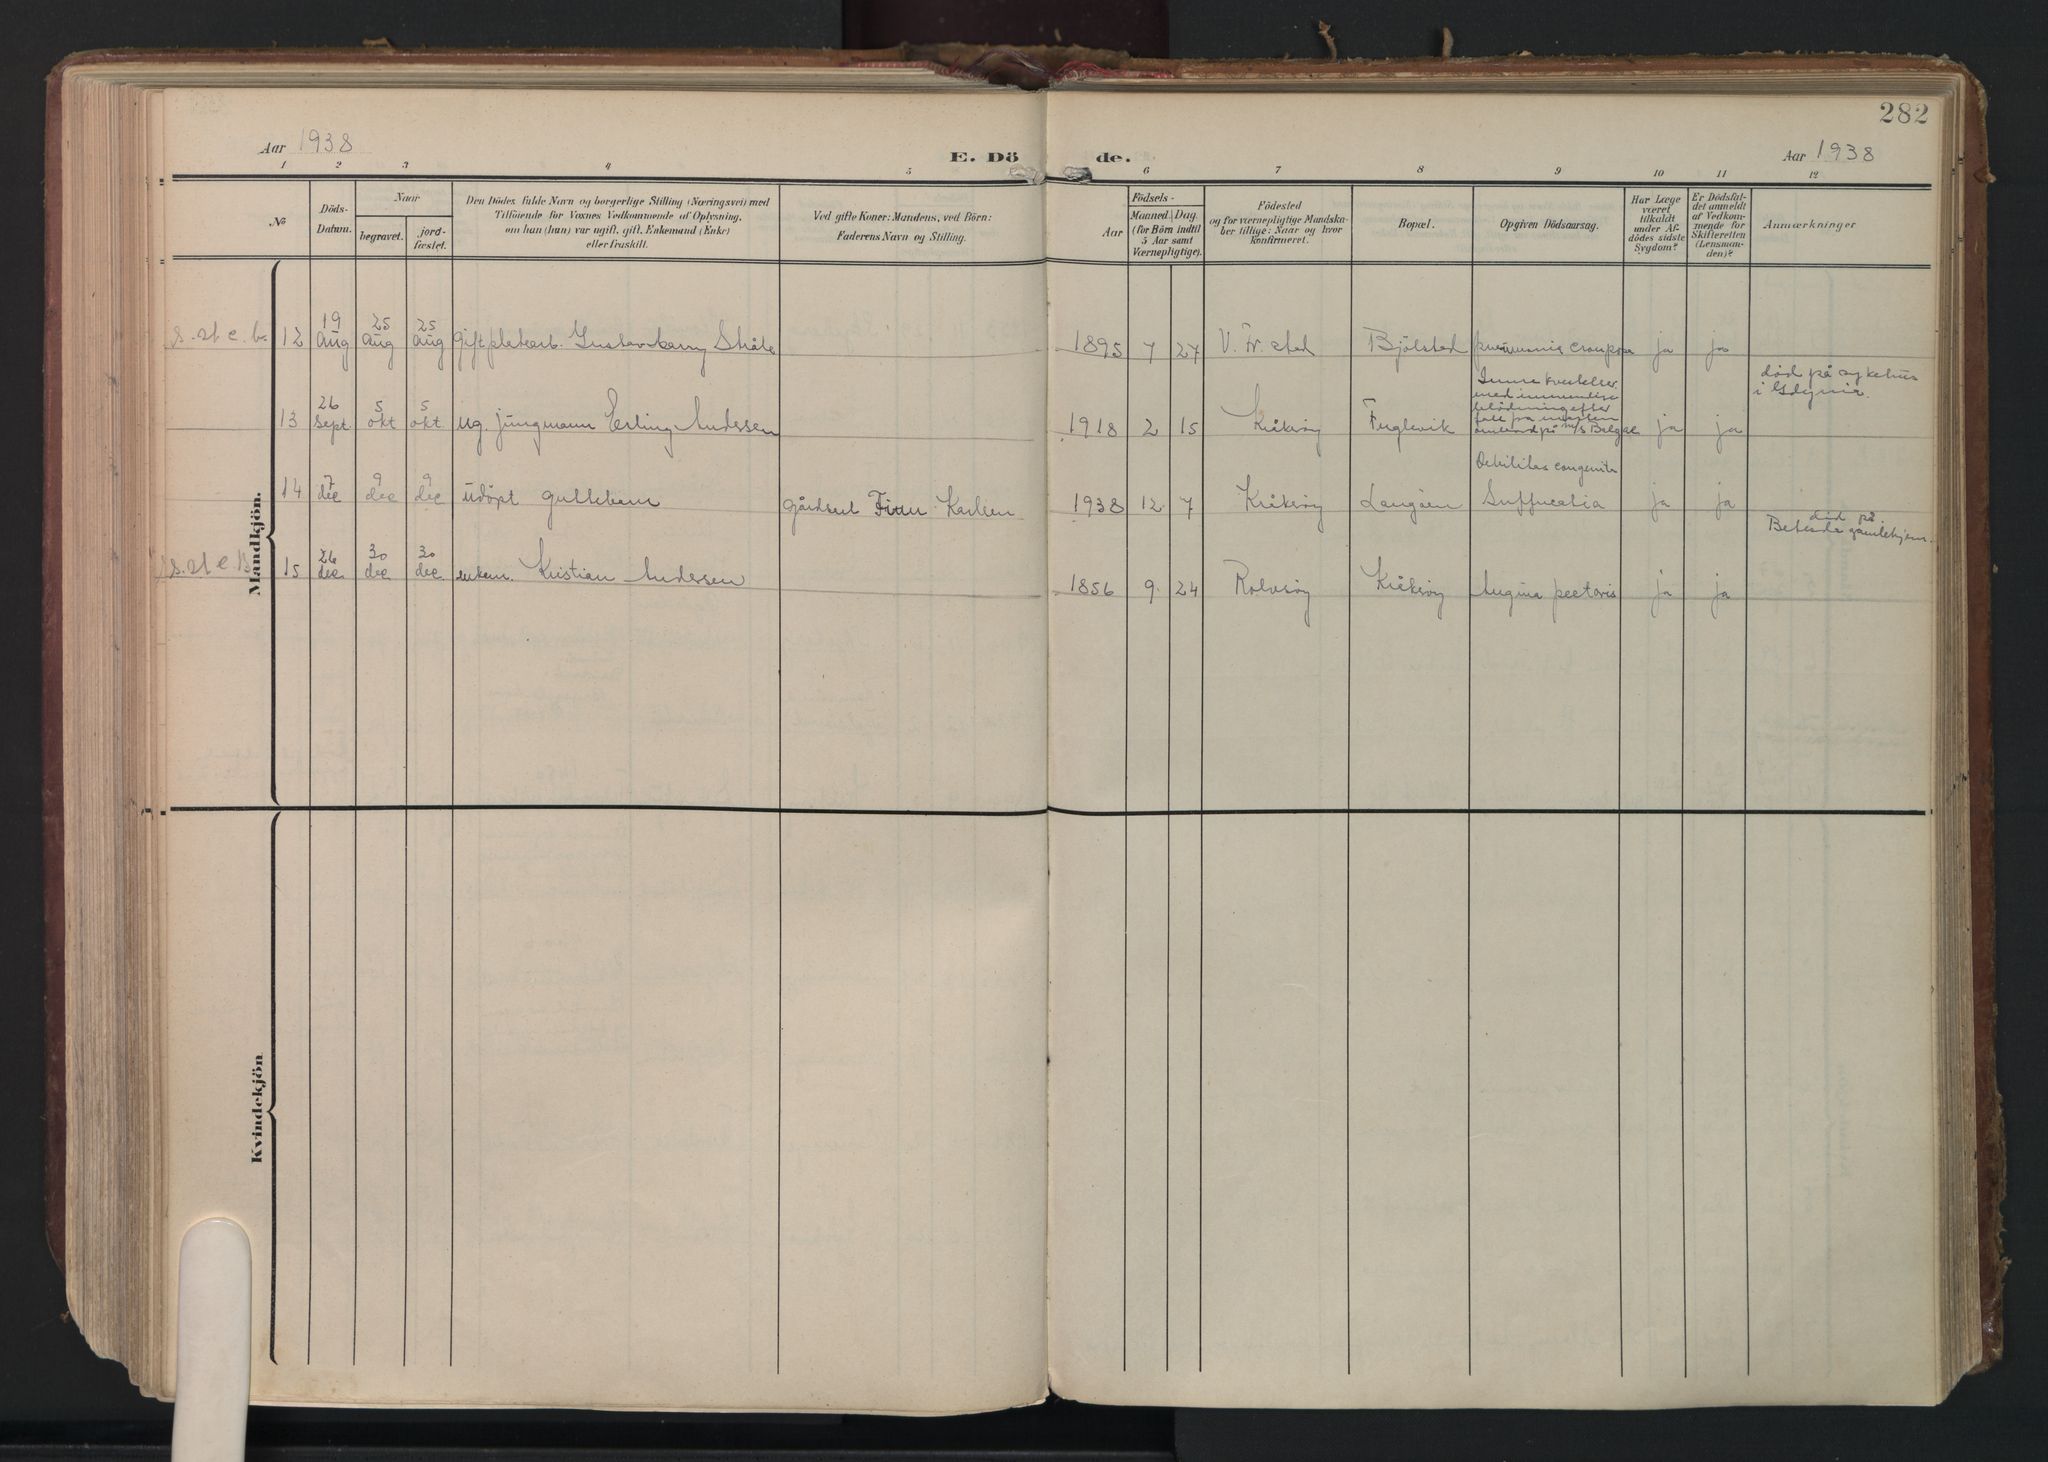 282
Aar 1938
E. Dö
de.
Aar 1938
1 2 3 4 5 6 7 8 9 10 11 12
No
Döds-
Datum.
Naar
begravet.
jord-
fæstet.
Den Dödes fulde Navn og borgerlige Stilling (Næringsvei) med
Tilföiende for Voxnes Vedkommende af Oplysning,
om han (hun) var ugift, gift, Enkemand (Enke)
eller fraskilt.
Ved gifte Koner: Mandens, ved Börn:
Faderens Navn og Stilling.
Födsels-
Aar
Maaned. Dag.
(for Börn indtil
5 Aar samt
Værnepligtige).
Födested
og for værnepligtige Mandska-
ber tillige: Naar og hvor
konfirmeret.
Bopæl.
Opgiven Dödsaarsag.
Har Læge
været
tilkaldt
under Af-
dödes sidste
Sygdom?
Er Dödsfal-
det anmeldt
af Vedkom-
mende for
Skifteretten
(Lensman-
den)?
Anmærkninger
Mandkjön.
12 19 aug 25 aug 25 aug gift platearb. Gustav Stråle 1895 7 27 V. Fr. stad Bjölstad pneumonia crouposa ja ja
13 26 sept 5 okt 5 okt ug. jungmann Erling Andersen 1918 2 15 Kråkröy Fuglevik
Indre kvestelser
med
blödning efter
fall på masten
ombord på m/s Belgae ja ja
död på sykehus
i Gdynia.
14 7 dec 9 dec 9 dec udöpt guttebarn gårdsarb Finn Karlsen 1938 12 7 Kråkröy Langöen
Debilitas congenita
Suffucatia ja ja
15 26 dec 30 dec 30 dec enkem. Kristian Andersen 1856 9 24 Rolvsöy Kråkröy Angina pectoris ja ja
död på
Betesda gamlehjem.
Kvindekjön